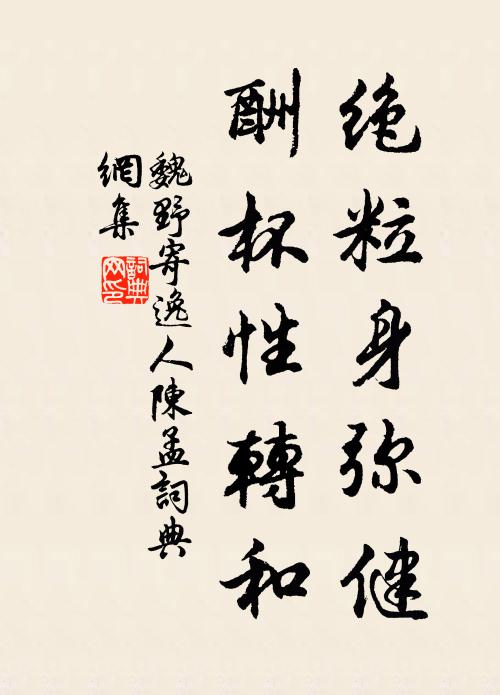 绝粒身弥健
酬杯性轉和
魏野寄逸人陳孟詞典
網集
詞典網印